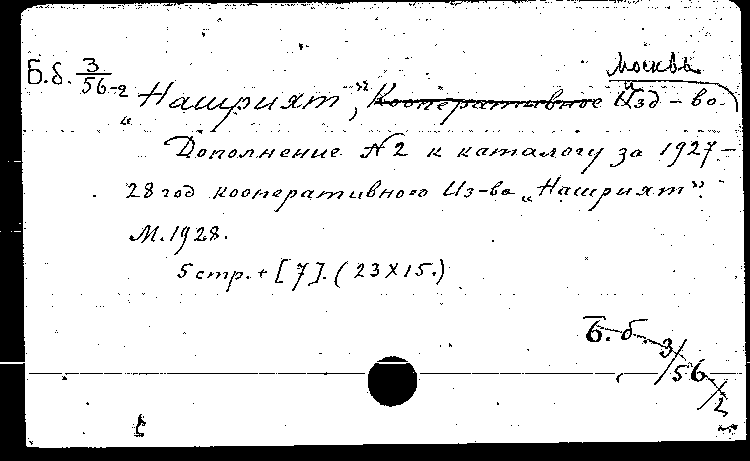 Б.б. 3/56-2
Москва
„Нашрият”, Кооперативное Изд-во.
Дополнение № 2 к каталогу за 1927-
28 год кооперативного Из-ва „Нашрият”.
М. 1928.
5 стр. + [7]. (23х15.)
Б. б. 3/56/2